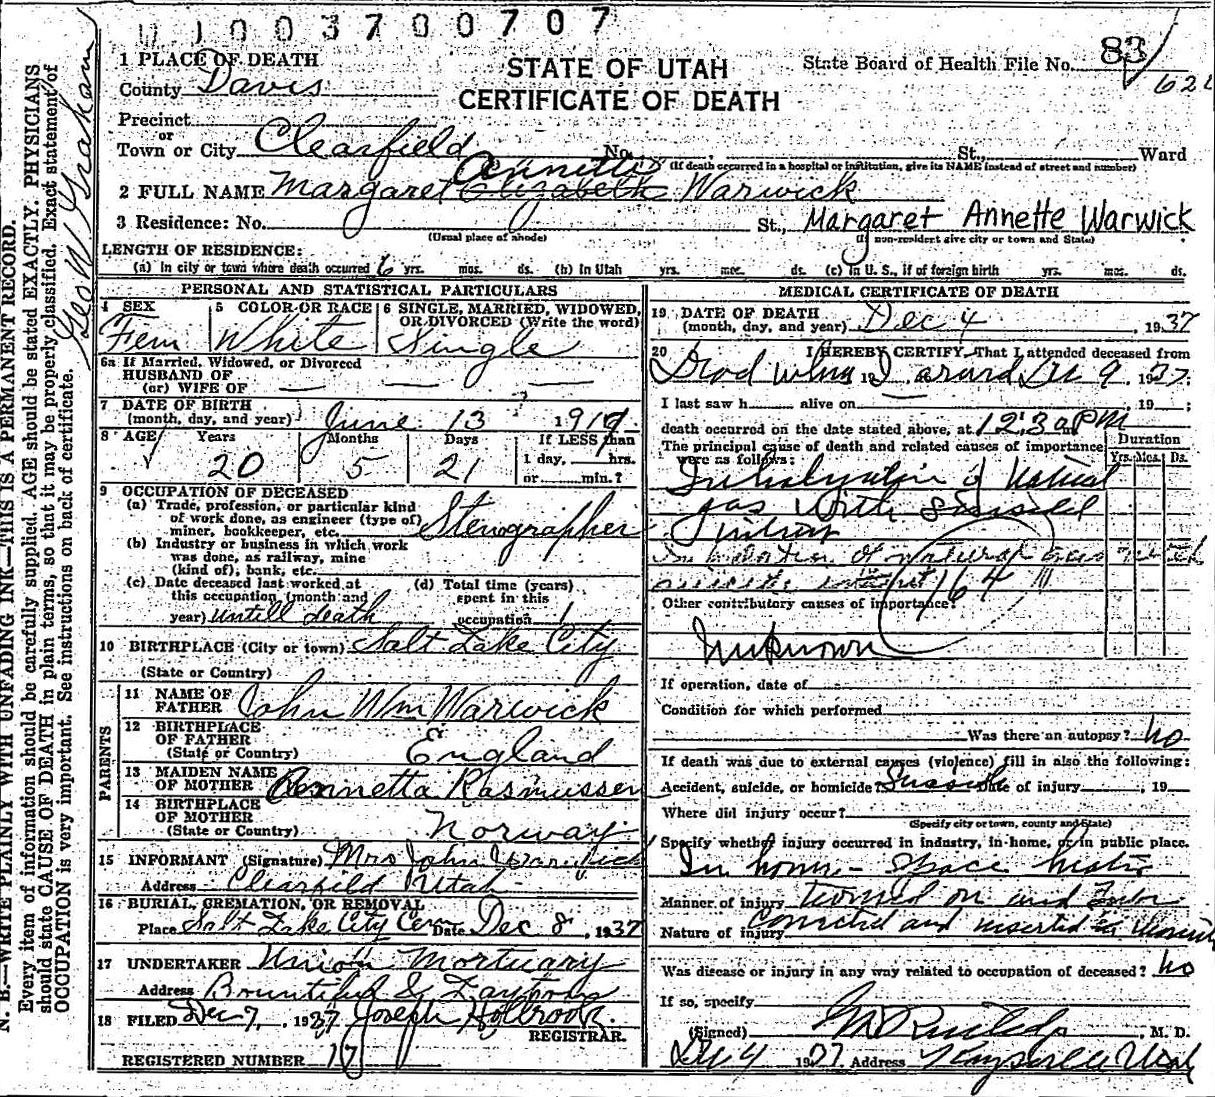 0 1 0 0 3 7 0 0 7 0 7
STATE OF UTAH
CERTIFICATE OF DEATH
State Board of Health File No. 83
1 PLACE OF DEATH
County Davis
Precinct
or
Town or City Clearfield No. St., Ward
(If death occurred in a hospital or institution, give its NAME instead of street and number)
Annette
2 FULL NAME Margaret Elizabeth Warwick
3 Residence: No. St., Margaret Annette Warwick
(Usual place of abode) (If non-resident give city or town and State)
LENGTH OF RESIDENCE:
(a) In city or town where death occurred 6 yrs. mos. ds. (b) In Utah yrs. mos. ds. (c) In U. S., if of foreign birth yrs. mos. ds.
PERSONAL AND STATISTICAL PARTICULARS
4 SEX Fem
5 COLOR OR RACE White
6 SINGLE, MARRIED, WIDOWED, OR DIVORCED (Write the word) Single
6a If Married, Widowed, or Divorced
HUSBAND OF
(or) WIFE OF
7 DATE OF BIRTH
(month, day, and year) June 13 1917
8 AGE Years 20 Months 5 Days 21 If LESS than
1 day, hrs.
or min.?
9 OCCUPATION OF DECEASED
(a) Trade, profession, or particular kind
of work done, as engineer (type of)
miner, bookkeeper, etc. Stenographer
(b) Industry or business in which work
was done, as railway, mine
(kind of), bank, etc.
(c) Date deceased last worked at
this occupation (month and
year) untill death
(d) Total time (years)
spent in this
occupation 1
10 BIRTHPLACE (City or town) Salt Lake City
(State or Country)
PARENTS
11 NAME OF
FATHER John Wm Warwick
12 BIRTHPLACE
OF FATHER England
(State or Country)
13 MAIDEN NAME
OF MOTHER Annetta Rasmussen
14 BIRTHPLACE
OF MOTHER
(State or Country) Norway
15 INFORMANT (Signature) Mrs John Warwick
Address Clearfield Utah
16 BURIAL, CREMATION, OR REMOVAL
Place Salt Lake City Cem Date Dec 8, 1937
17 UNDERTAKER Union Mortuary
Address Bountiful & Layton
18 FILED Dec 7, 1937 Joseph Holbrook
REGISTRAR.
REGISTERED NUMBER 17
MEDICAL CERTIFICATE OF DEATH
19 DATE OF DEATH
(month, day, and year) Dec 4, 1937
20 I HEREBY CERTIFY, That I attended deceased from
Dead when I 1937
I last saw h alive on , 19 ;
death occurred on the date stated above, at 12:30 PM
The principal cause of death and related causes of importance
were as follows:
Duration
Yrs. Mos. Ds.
Inhalation of Natural
gas with Suicidal
Intent
Inhalation of natural gas with
suicide intent 164
Other contributory causes of importance:
Unknown
If operation, date of
Condition for which performed
Was there an autopsy? no
If death was due to external causes (violence) fill in also the following:
Accident, suicide, or homicide? Suicide Date of injury , 19
Where did injury occur?
(Specify city or town, county and State)
Specify whether injury occurred in industry, in home, or in public place.
In home - space heater
Manner of injury turned on and
Nature of injury connected and inserted in
Was disease or injury in any way related to occupation of deceased? no
If so, specify
(Signed) M. D.
Dec 4 1937 Address Kaysville Utah
N. B.—WRITE PLAINLY WITH UNFADING INK—THIS IS A PERMANENT RECORD.
Every item of information should be carefully supplied. AGE should be stated EXACTLY. PHYSICIANS
should state CAUSE OF DEATH in plain terms, so that it may be properly classified. Exact statement of
OCCUPATION is very important. See instructions on back of certificate.
Geo W Graham